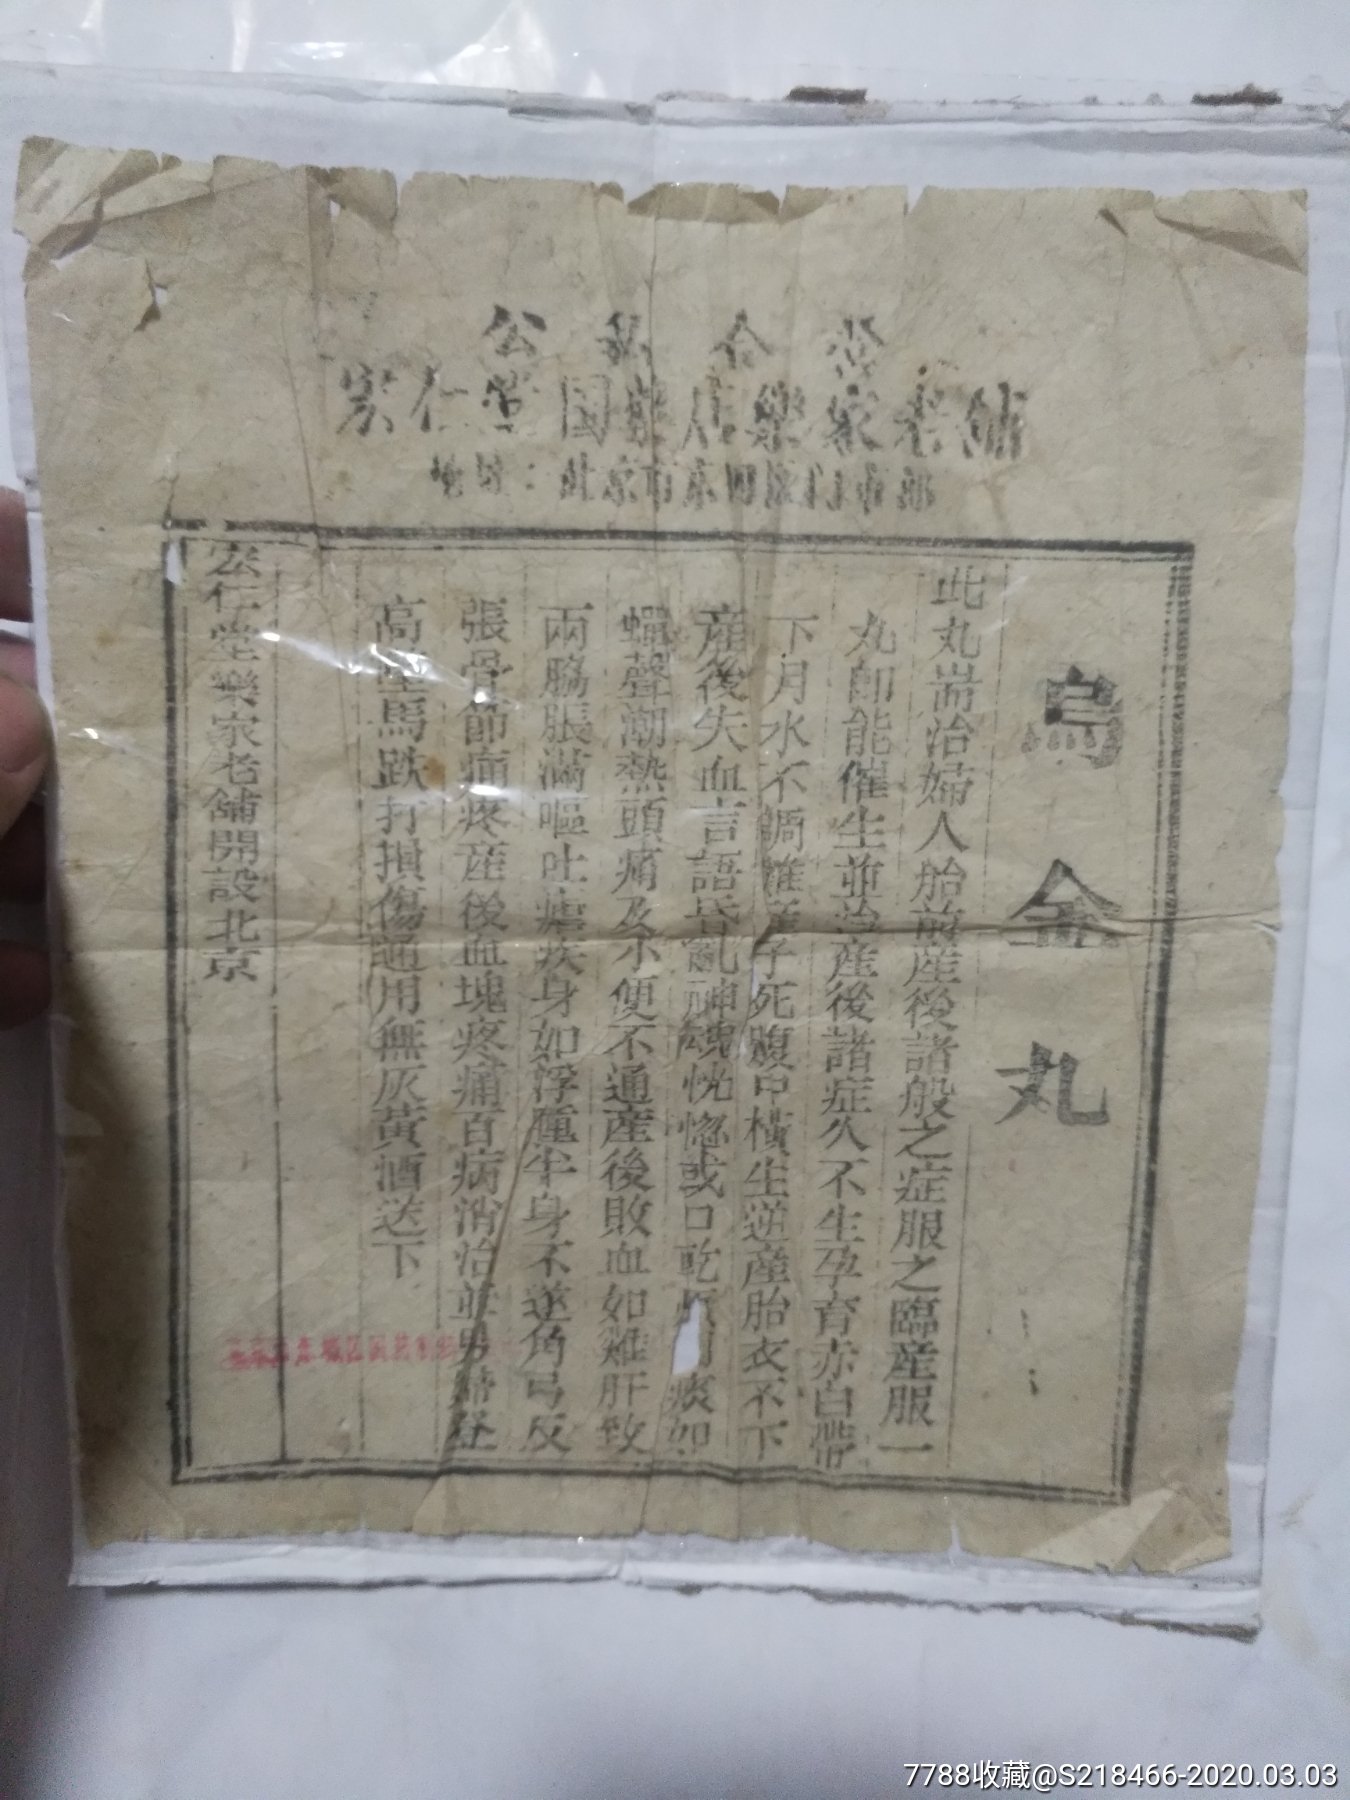 公私合营
宏仁堂国药店樂家老铺
地址：北京市东四
烏金丸
此丸耑治婦人胎前産後諸般之症服之臨産服一
丸卽能催生並治産後諸症久不生孕育赤白帶
下月水不調難産子死腹中橫生逆産胎衣不下
産後失血言語昏亂神魂恍惚或口乾痰如
蟬聲潮熱頭痛及小便不通産後敗血如雞肝致
兩脇脹滿嘔吐瘧疾身如浮腫半身不遂角弓反
張骨節痛疼産後血塊疼痛百病消治並男婦登
高墜馬跌打損傷通用無灰黃酒送下
宏仁堂樂家老舖開設北京
东城区
7788收藏@S218466-2020.03.03